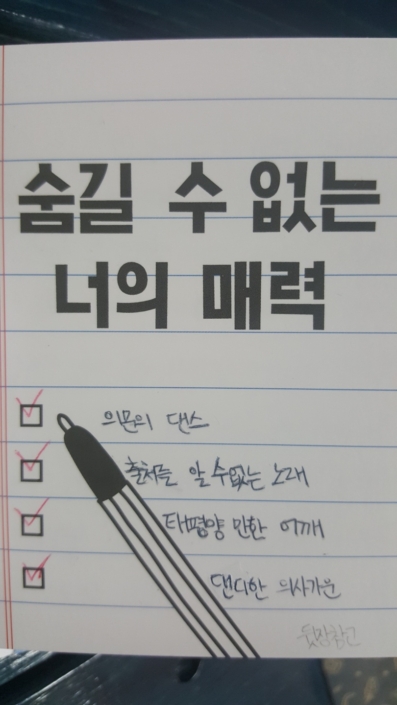 숨길 수 없는
너의 매력
의문의 댄스
출처를 알 수 없는 노래
태평양 만한 어깨
댄디한 의사가운
뒷장참고